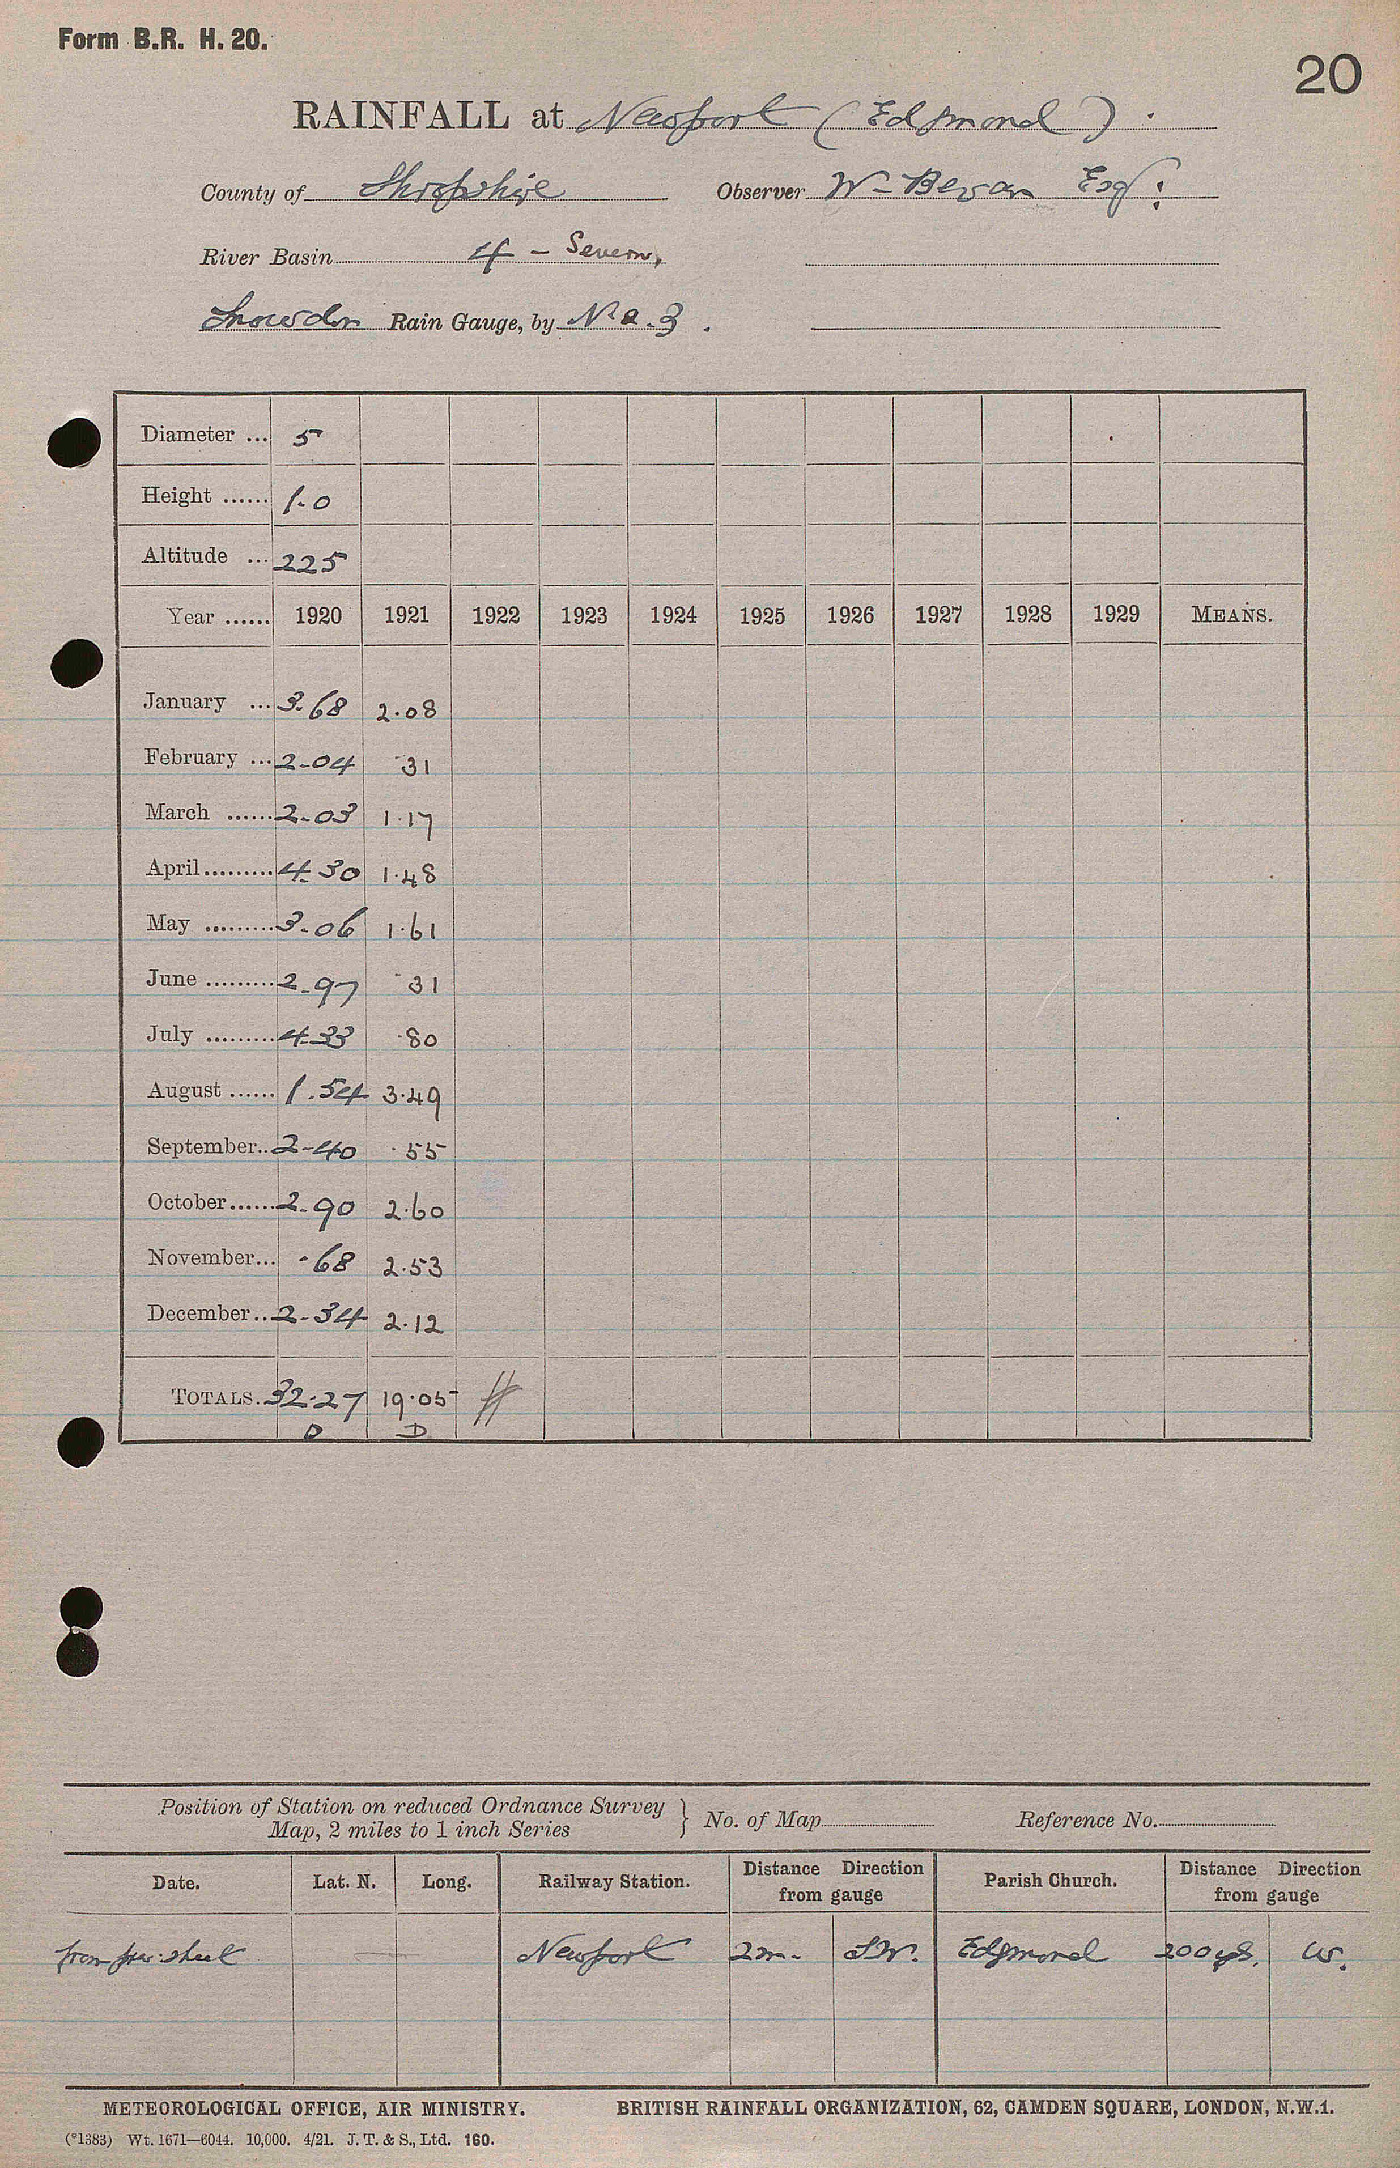 Form B.R. H. 20.
20
RAINFALL at Newport (Edgmond).
County of Shropshire Observer Wm Bevan Esq:
River Basin 4 - Severn,
Snowdon Rain Gauge, by N & Z.
Diameter ... 5
Height ...... 1.0
Altitude ... 225
Year ...... 1920 1921 1922 1923 1924 1925 1926 1927 1928 1929 MEANS.
January ... 3.68 2.08
February ... 2.04 .31
March ...... 2.03 1.17
April ......... 4.30 1.48
May ......... 3.06 1.61
June ......... 2.97 .31
July ......... 4.33 .80
August ...... 1.54 3.49
September.. 2.40 .55
October ...... 2.90 2.60
November... .68 2.53
December.. 2.34 2.12
TOTALS. 32.27 19.05 #
D D
Position of Station on reduced Ordnance Survey Map, 2 miles to 1 inch Series } No. of Map Reference No.
Date. Lat. N. Long. Railway Station. Distance Direction from gauge Parish Church. Distance Direction from gauge
from prev: sheet Newport 2m. S.W. Edgmond 200 yds. W.
METEOROLOGICAL OFFICE, AIR MINISTRY. BRITISH RAINFALL ORGANIZATION, 62, CAMDEN SQUARE, LONDON, N.W.1.
(*1383) Wt. 1671—6044. 10,000. 4/21. J. T. & S., Ltd. 160.